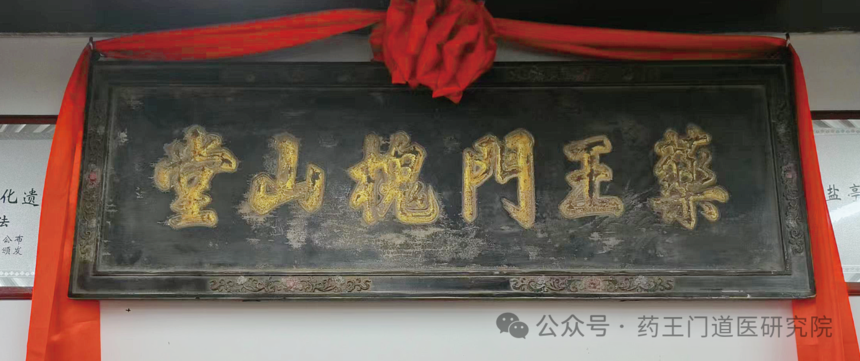 藥王門槐山堂
化遗
法
公布
颁发
盐亭
公众号·药王门道医研究院